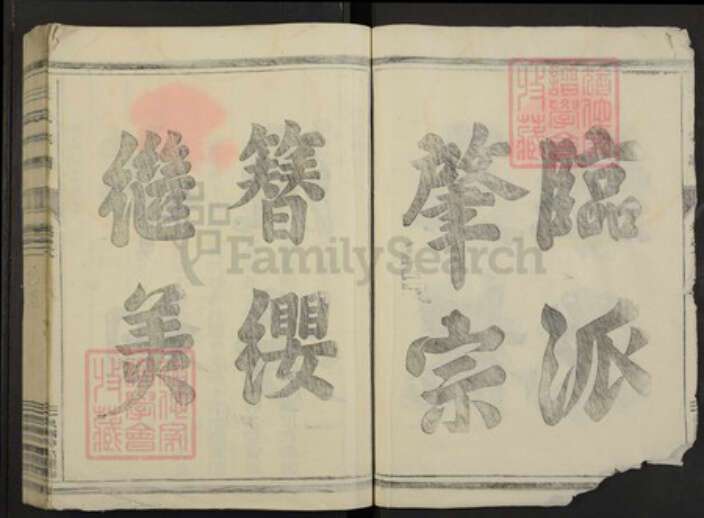 臨派
肇宗
簪纓
繼美
FamilySearch